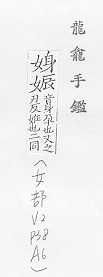 龍龕手鑑
娠 音身孕也又之
刃反妊也二同
(女部
V2
P38
A6)